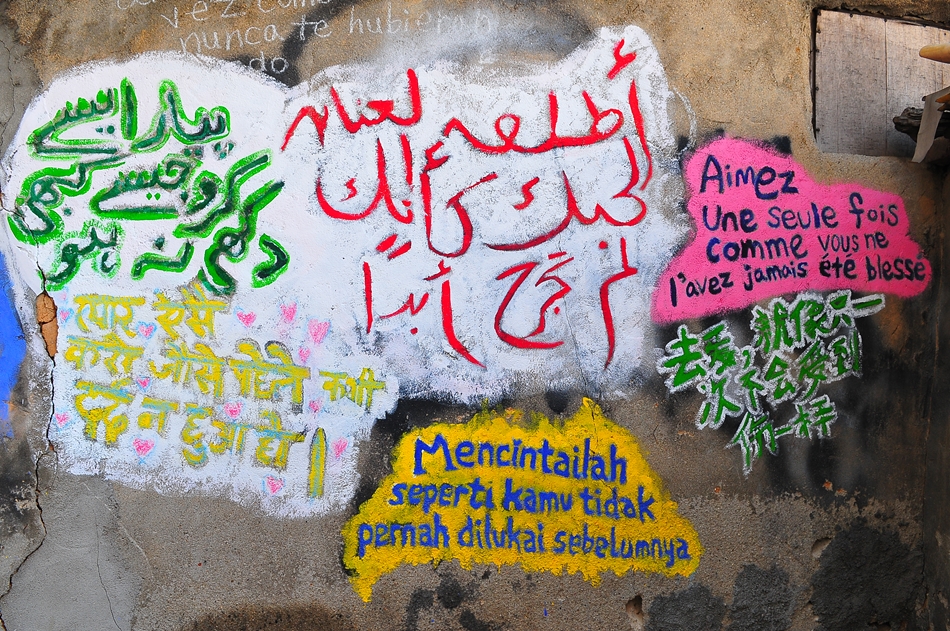 vez como
nunca te hubieran
do
پیار ایسے
کرو جیسے کبھی
نہ
لعنان
لحبك كأنك
لم تجرح أبدا
Aimez
Une seule fois
comme vous ne
l'avez jamais été blessé
प्यार
करो जैसे कभी
दर्द न हुआ
去爱,
次不会受到
一样
Mencintailah
seperti kamu tidak
pernah dilukai sebelumnya